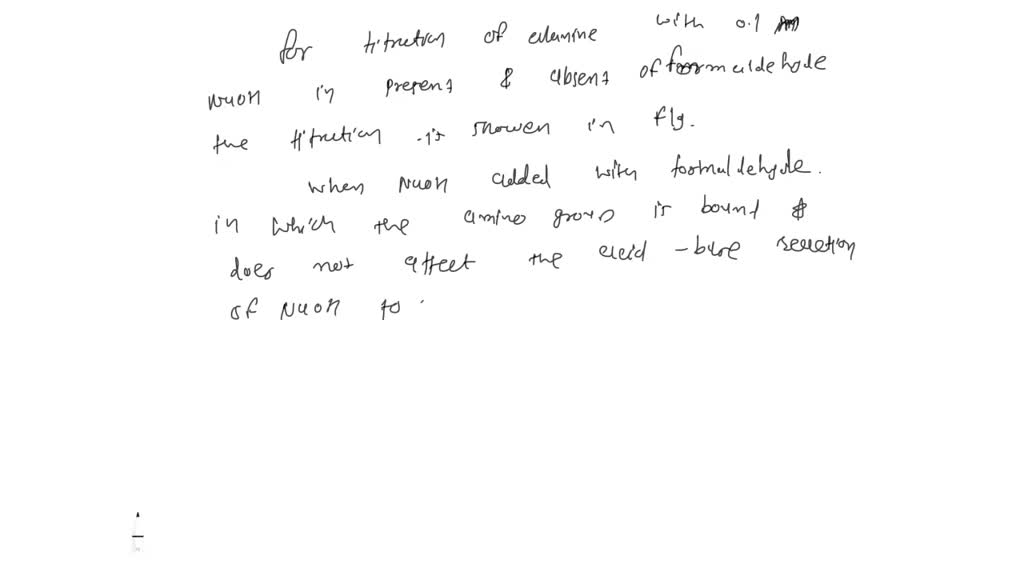 for titration of alanine with 0.1
NaOH in present & absent of formaldehyde
the titration is showen in fig.
when NaOH added with formaldehyde.
in which the amino group is bound &
does not affect the acid - base reaction
of NaOH to